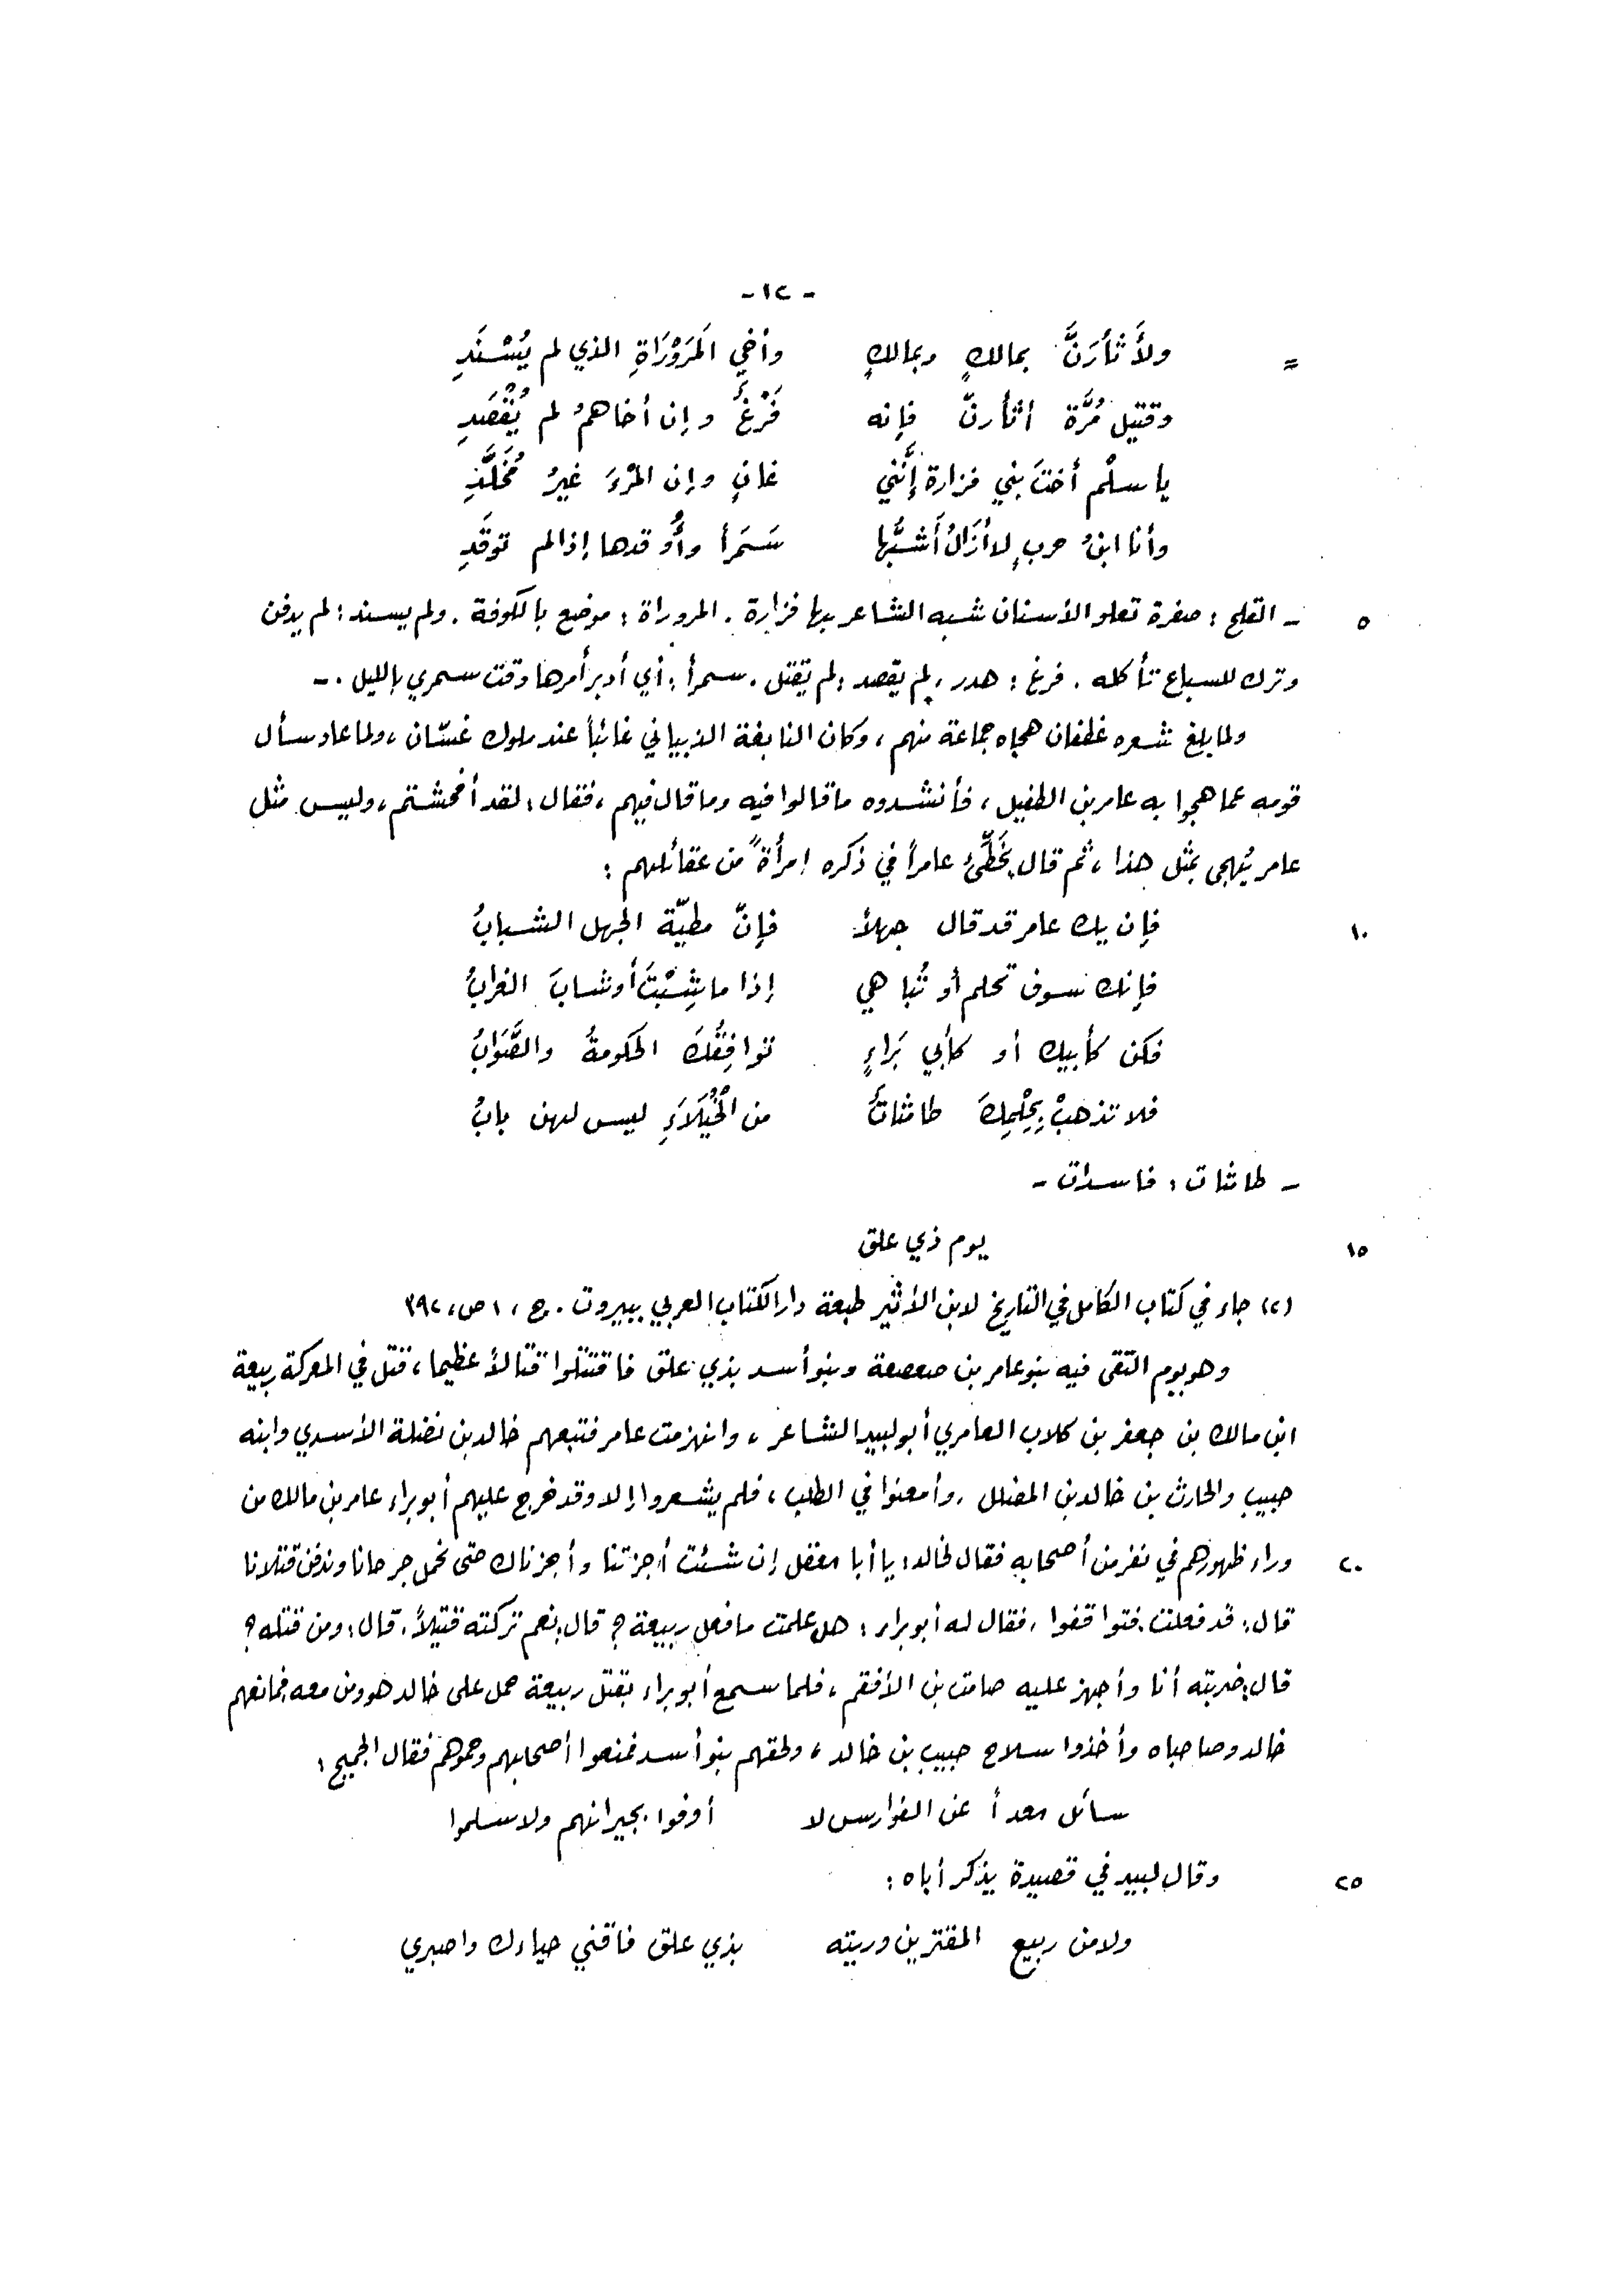 - ١٢ -
= ولأَثأرَنَّ بمالكٍ وبمالكٍ وأخي المَرَوْرَاةِ الذي لم يُسْنَدِ
وقتيل مُرَّة أثأرنّ فإنه فَرْغٌ وإن أخاهمُ لم يُقْصَدِ
يا سلْم أختَ بني فزارة إنَّني غانٍ وإن المرْءَ غيرُ مُخَلَّدِ
وأنا ابنُ حربٍ لا أزَالُ أَشُبُّها سَمَراً وأُوقدها إذا لم توقَدِ
٥ - القلح : صفرة تعلو الأسنان شبه الشاعر بها فزارة . المروراة : موضع بالكوفة . ولم يسند : لم يدفن
وترك للسباع تأكله . فرغ : هدر . لم يقصد : لم يقتل . سمراً : أي أدبر أمرها وقت سمري بالليل . -
ولما بلغ شعره غطفان هجاه جماعة منهم ، وكان النابغة الذبياني غائباً عند ملوك غسّان ، ولما عاد سأل
قومه عما هجوا به عامر بن الطفيل ، فأنشدوه ما قالوا فيه وما قال فيهم ، فقال : لقد أفحشتم ، وليس مثل
عامر يُهجى بمثل هذا ، ثم قال يُخَطِّئُ عامراً في ذكره إمرأةً من عقائلهم :
١٠ فإن يك عامر قد قال جهلاً فإنّ مطيّة الجهل الشبابُ
فإنك سوف تحلم أو تُباهي إذا ما شِبْتَ أو شابَ الغرابُ
فكن كأبيك أو كأبي بَراءٍ توافِقُكَ الحكومةُ والصَّوَابُ
فلا تذهبْ بِحِلْمِكَ طامثاتٌ من الخُيَلَاءِ ليس لهن بابُ
- طامثات : فاسدات -
١٥ يوم ذي علق
(٢) جاء في كتاب الكامل في التاريخ لابن الأثير طبعة دار الكتاب العربي ببيروت . ج ، ١ ص ، ٣٩٢
وهو يوم التقى فيه بنو عامر بن صعصعة وبنو أسد بذي علق فاقتتلوا قتالاً عظيما ، قتل في المعركة ربيعة
ابن مالك بن جعفر بن كلاب العامري أبو لبيد الشاعر ، وانهزمت عامر فتبعهم خالد بن نضلة الأسدي وابنه
حبيب والحارث بن خالد بن المضلل . وأمعنوا في الطلب ، فلم يشعروا إلا وقد خرج عليهم أبو براء عامر بن مالك من
٢٠ وراء ظهورهم في نفر من أصحابه فقال لخالد : يا أبا معقل إن شئت أجزتنا وأجزناك حتى نحمل جرحانا وندفن قتلانا
قال : قد فعلت . فتواقفوا . فقال له أبو براء : هل علمت ما فعل ربيعة ؟ قال : نعم تركته قتيلاً . قال : ومن قتله ؟
قال : ضربته أنا وأجهز عليه صامت بن الأفقم ، فلما سمع أبو براء بقتل ربيعة حمل على خالد هو ومن معه فمانعهم
خالد وصاحباه وأخذوا سلاح حبيب بن خالد ، ولحقهم بنو أسد فمنعوا أصحابهم وحموهم فقال الجميح :
سائل معداً عن الفوارس لا أوفوا بجيرانهم ولا سلموا
٢٥ وقال لبيد في قصيدة يذكر أباه :
ولا من ربيع المقترين رزيته بذي علق فاقني حياءك واصبري